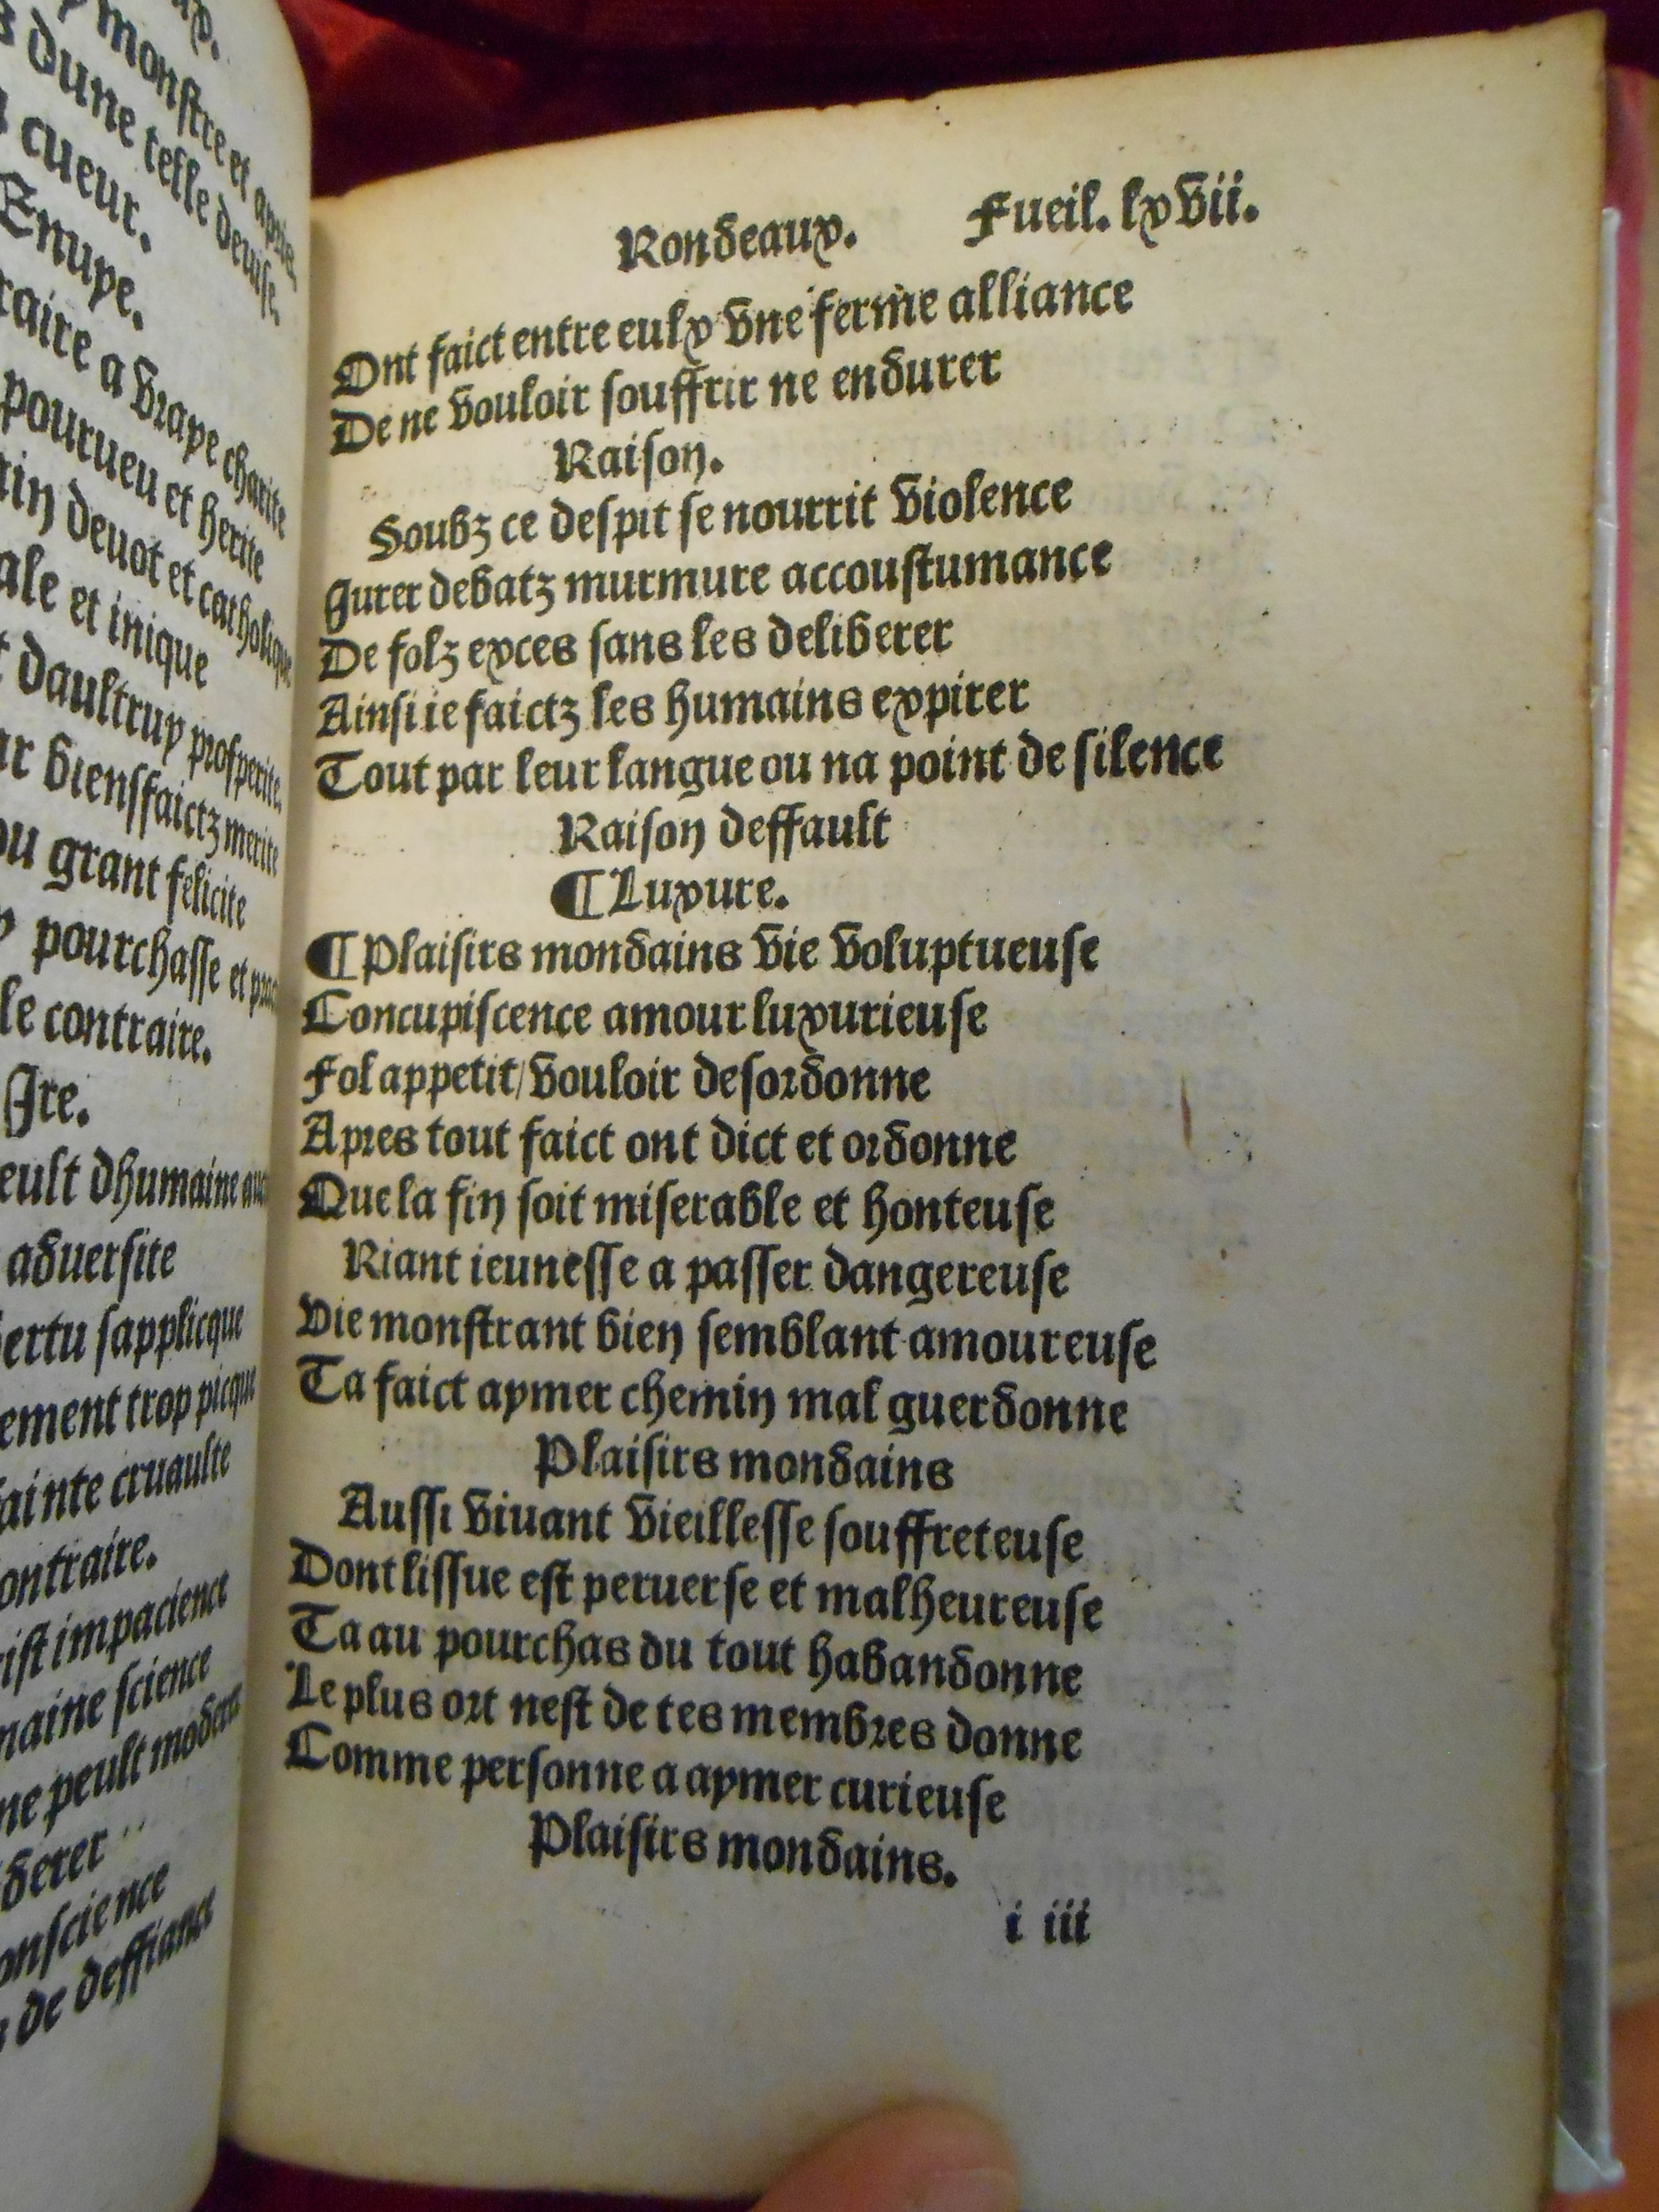 y monstre et apres
dune telle deuise.
cueur.
Enuye.
raire a vraye charite
pourueu et herite
deuot et catholique
ale et inique
daultruy prosperite.
bienffaictz merite
grant felicite
pourchasse et
le contraire.
Ire.
eult dhumaine
aduersite
sapplicque
ement trop picque
cruaulte
ontraire.
impacience
maine science
ne peult
derer
onscience
de deffiance
Rondeaux. Fueil. lxvii.
Ont faict entre eulx vne ferme alliance
De ne vouloir souffrir ne endurer
Raison.
Soubz ce despit se nourrit violence
Iurer debatz murmure accoustumance
De folz exces sans les deliberer
Ainsi ie faictz les humains expirer
Tout par leur langue ou na point de silence
Raison deffault
¶ Luxure.
¶ Plaisirs mondains vie voluptueuse
Concupiscence amour luxurieuse
Fol appetit/ vouloir desordonne
Apres tout faict ont dict et ordonne
Que la fin soit miserable et honteuse
Riant ieunesse a passer dangereuse
Vie monstrant bien semblant amoureuse
Ta faict aymer chemin mal guerdonne
Plaisirs mondains
Aussi viuant vieillesse souffreteuse
Dont lissue est peruerse et malheureuse
Ta au pourchas du tout habandonne
Le plus ort nest de tes membres donne
Comme personne a aymer curieuse
Plaisirs mondains.
i iii